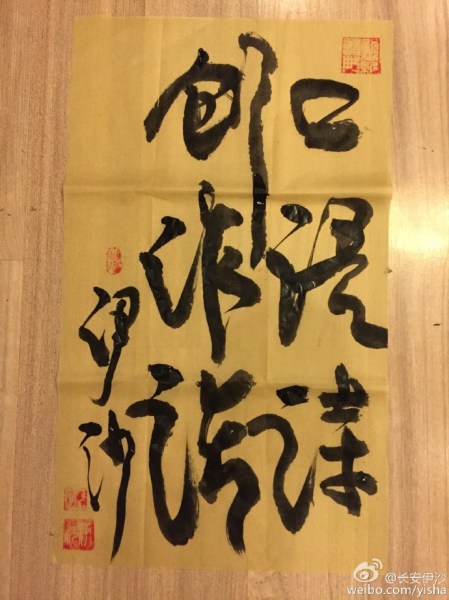 口语诗
创作谈
伊沙
@长安伊沙
weibo.com/yisha